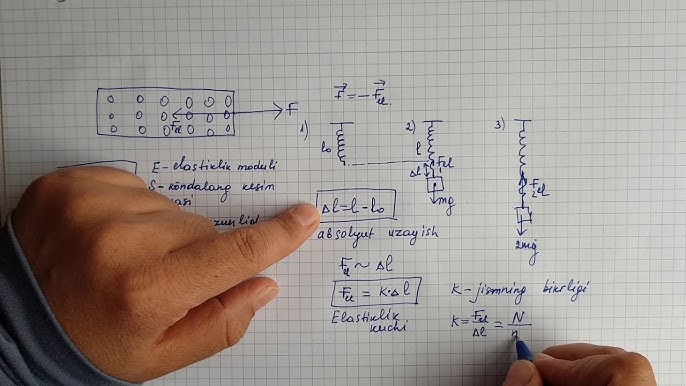 F⃗ = -F⃗el.
Fel
F
1)
l₀
2)
l
Δl
Fel
mg
3)
F2el
2mg
E - elastiklik moduli
S - kondalang kesim
Δl = l - l₀
absolyut uzayish
Fel ~ Δl
Fel = K·Δl
Elastiklik
kuchi
K - jismning bikrligi
K = Fel/Δl = N/